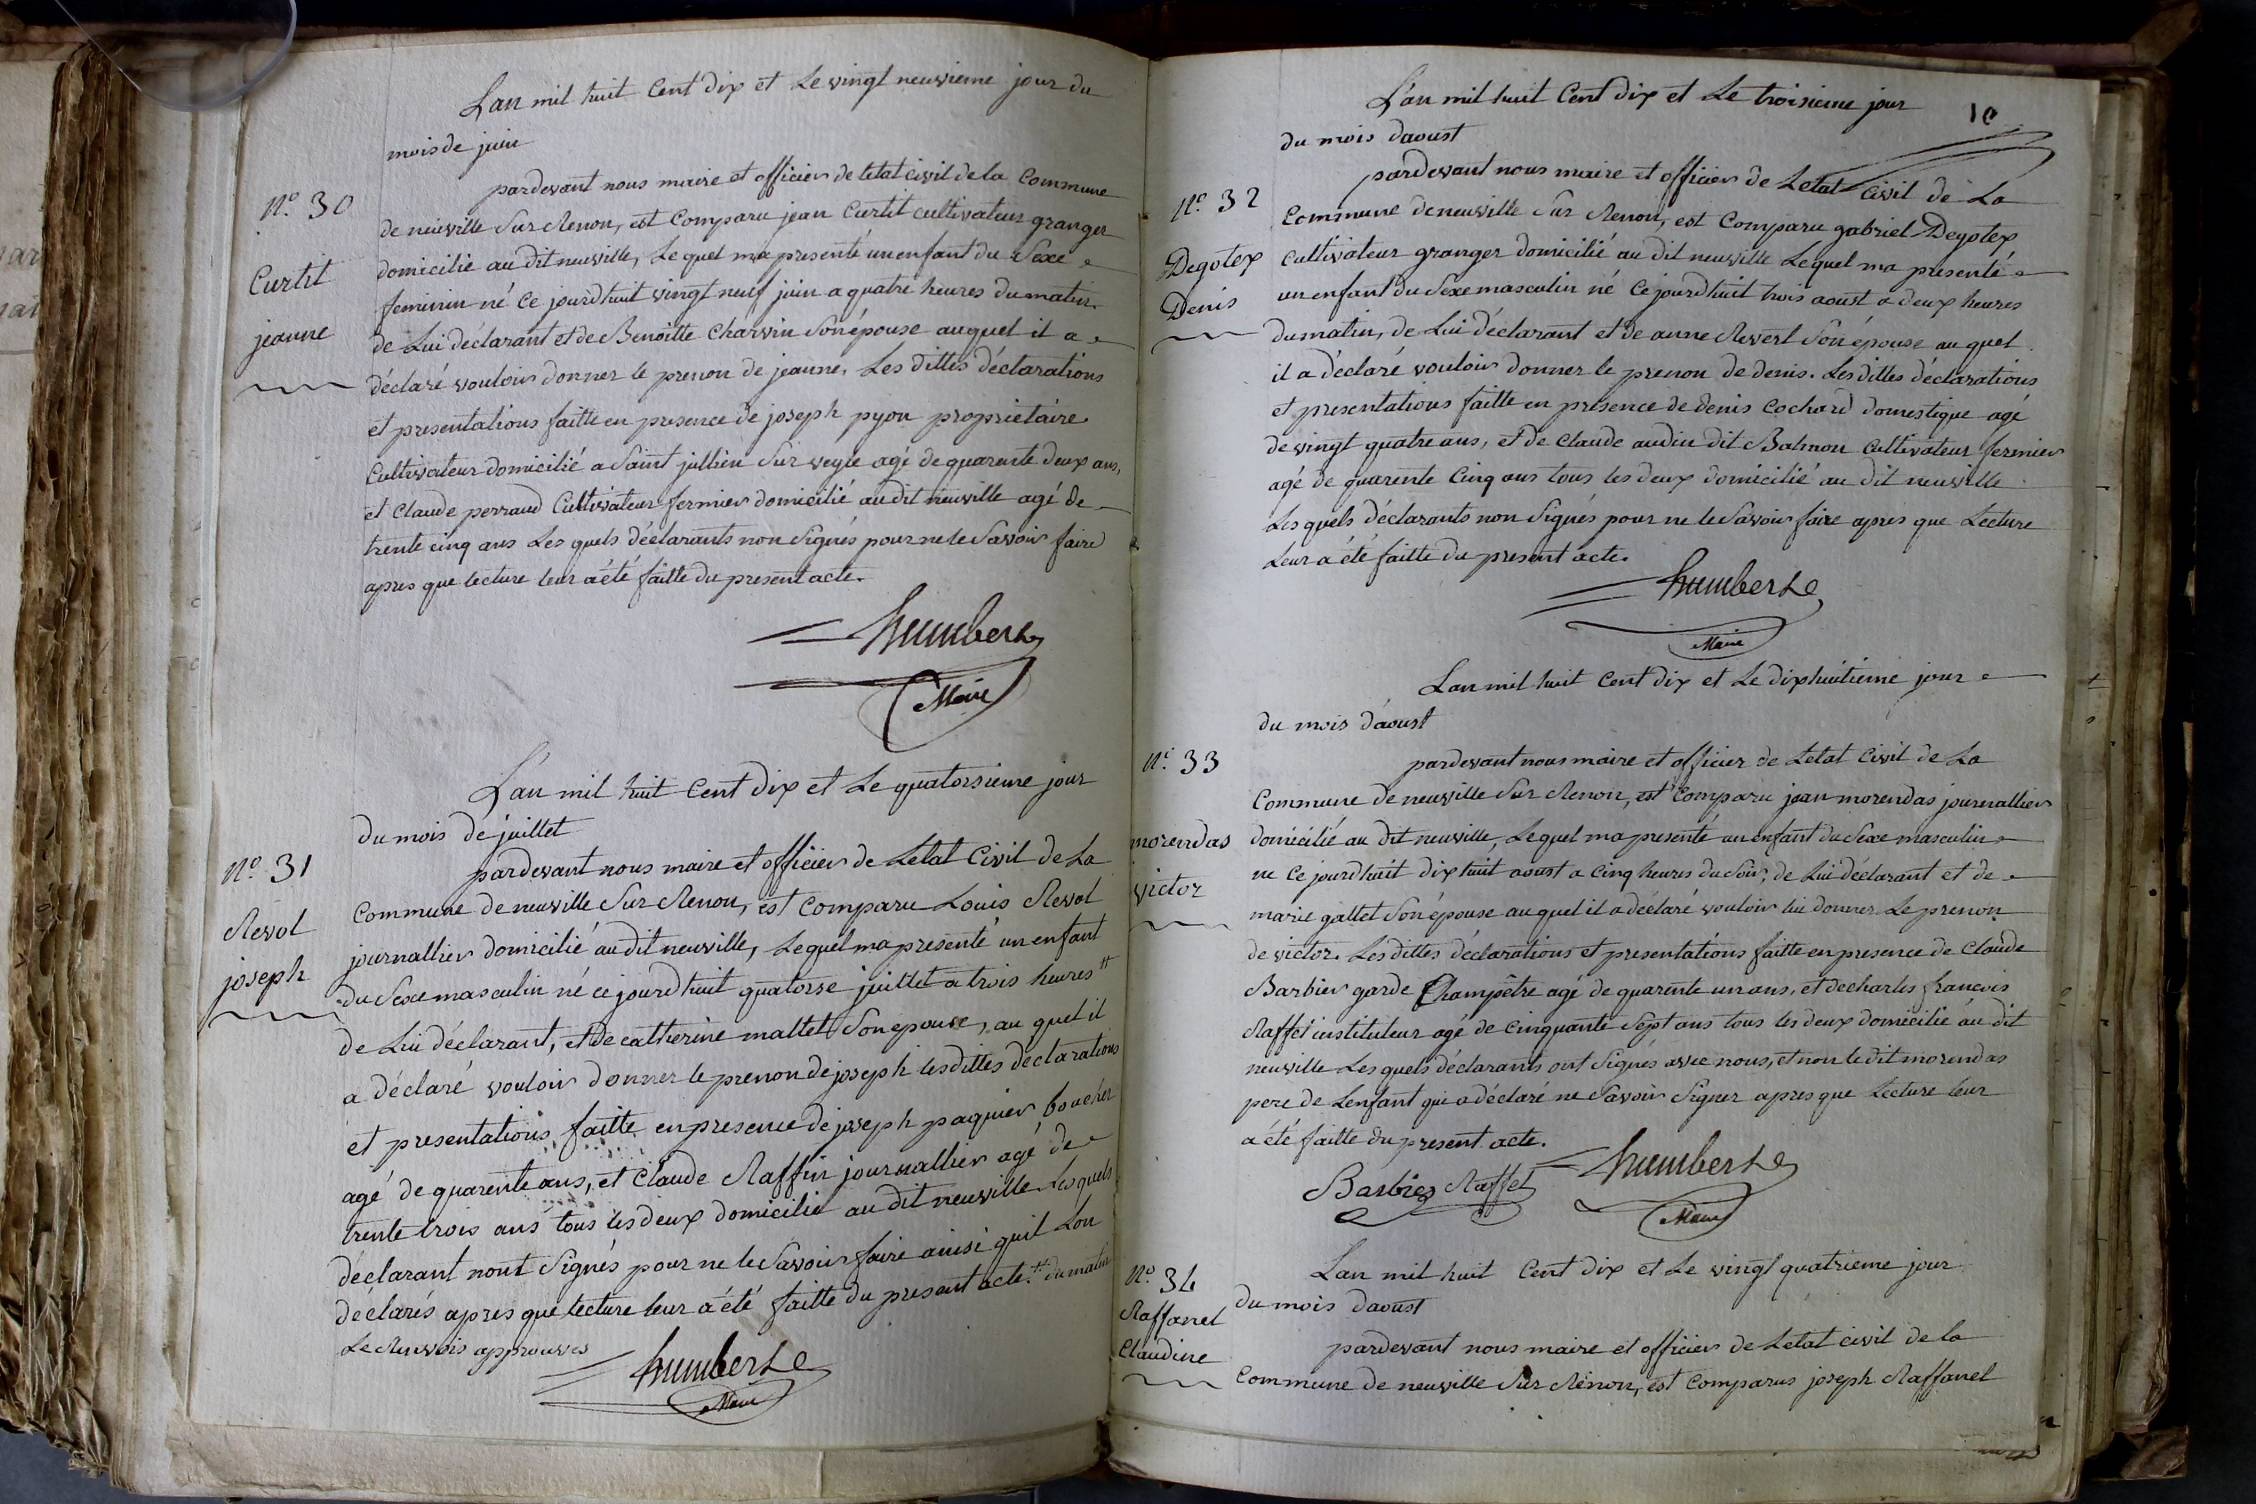 Lan mil huit Cent dix et Le vingt neuvieme jour du
mois de juin
pardevant nous maire et officier de letat civil de la Commune
N.o 30
de neuville Sur Renon, est Comparu jean Curtil cultivateur granger
domicilié au dit neuville, Le quel ma presenté un enfant du Sexe
Curtil
feminin né Ce jourdhuit vingt neuf juin a quatre heures du matin
jeanne
de Lui déclarant et de Benoitte Charvin Son épouse auquel il a
déclaré vouloir donner le prenon de jeanne. Les dittes déclarations
et presentations faitte en presence de joseph pyon proprietaire
Cultivateur domicilié a Saint jullien Sur veyle agé de quarante deux ans,
et Claude perraud Cultivateur fermier domicilié au dit neuville agé de
trente cinq ans Les quels déclarants non Signés pour ne le Savoir faire
apres que lecture leur a été faitte du present acte.
humbert
Maire
L'an mil huit Cent dix et Le quatorsieme jour
du mois de juillet
pardevant nous maire et officier de Letat Civil de La
N.o 31
Commune de neuville Sur Renon, est Comparu Louis Revol
Revol
journallier domicilié au dit neuville, Lequel ma presenté un enfant
joseph
du Sexe masculin né ce jourdhuit quatorse juillet a trois heures #
de Lui déclarant, et de catherine mallet Son epouse, au quel il
a déclaré vouloir donner le prenon de joseph lesdittes declarations
et presentations faitte en presence de joseph paquier boucher
agé de quarente ans, et Claude Raffin journallier agé de
trente trois ans tous les deux domicilié au dit neuville Les quels
déclarant nont Signés pour ne le Savoir faire ainsi quil Lon
déclarés apres que lecture leur a été faitte du present acte. # du matin
Le Renvois approuves
humbert
Maire
L'an mil huit Cent dix et Le troisieme jour
10
du mois daoust
pardevant nous maire et officier de Letat Civil de La
N.o 32
Commune de neuville Sur Renon, est Comparu gabriel Degotex
Degotex
cultivateur granger domicilié au dit neuville Lequel ma presenté
Denis
un enfant du Sexe masculin né Ce jourdhuit trois aoust a deux heures
du matin, de Lui déclarant et de anne Revert Son épouse au quel
il a déclaré vouloir donner le prenon de denis. Les dittes déclarations
et presentations faitte en présence de denis Cochard domestique agé
de vingt quatre ans, et de Claude audin dit Balmon Cultivateur fermier
agé de quarente Cinq ans tous les deux domicilié au dit neuville
Les quels déclarants non Signés pour ne le Savoir faire apres que Lecture
Leur a été faitte du present acte.
humbert
Maire
Lan mil huit Cent dix et Le dixhuitieme jour
du mois d'aoust
N.o 33
pardevant nous maire et officier de Letat Civil de La
Commune de neuville Sur Renon, est Comparu jean morendas journallier
morendas
domicilié au dit neuville, Lequel ma presenté un enfant du Sexe masculin
victor
ne Ce jourdhuit dix huit aoust a Cinq heures du Soir, de Lui déclarant et de
marie gallet Son épouse auquel il a déclaré vouloir lui donner Le prenon
de victor. Les dittes déclarations et presentations faitte en presence de Claude
Barbier garde Champêtre agé de quarente un ans, et de charles francois
Raffet instituteur agé de Cinquante Sept ans tous les deux domicilié au dit
neuville Les quels déclarants ont Signés avec nous, et non le dit morendas
pere de Lenfant qui a déclaré ne Savoir Signer apres que Lecture leur
a été faitte du present acte.
Barbier Raffet humbert
Maire
N.o 34
Lan mil huit Cent dix et Le vingt quatrieme jour
Raffanel
du mois daoust
Claudine
pardevant nous maire et officier de Letat civil de la
Commune de neuville Sur Renon, est Comparus joseph Raffanel